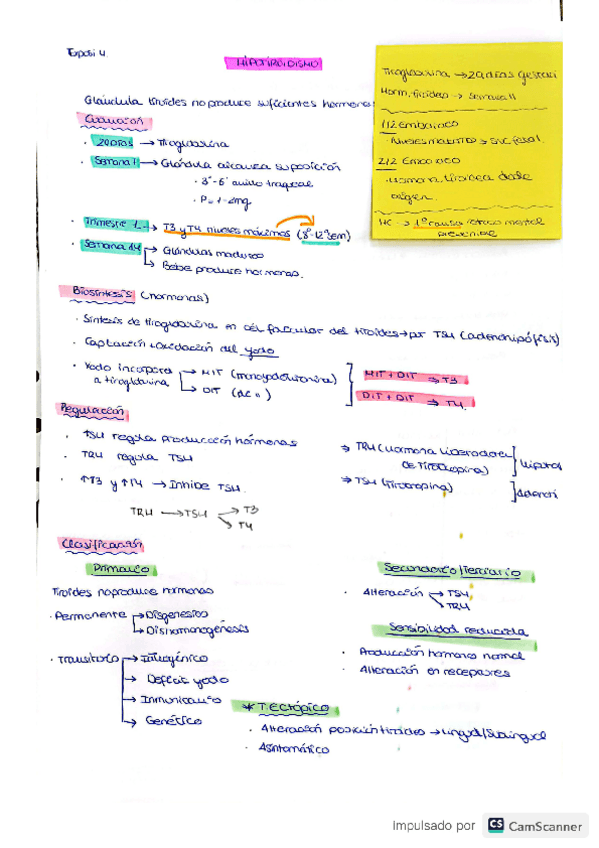 Exposi 4
HIPOTIROIDISMO
Glándula tiroides no produce suficientes hormonas
Tiroglobulina → 29 días gestaci
Horm. tiroideas → Semana 11
1/2 Embarazo
· Niveles maternos → SNC fetal.
2/2 Embarazo
· Hormona tiroidea doble origen.
HC → 1ª causa retraso mental prevenible
· 29 días → Tiroglobulina
· Semana 7 → Glándula alcanza su posición
· 3º - 6º anillo traqueal
· P = 1-2mg
· Trimestre 1 → T3 y T4 niveles máximos (8º-12º Sem)
· Semana 14 → Glándulas maduras
→ Bebé produce hormonas.
Biosíntesis (hormonas)
· Síntesis de tiroglobulina en cél folicular del tiroides → por TSH (adenohipófisis)
· Captación + oxidación del yodo
· Yodo incorpora a tiroglobulina → MIT (monoyodotirosina)
→ DIT (di " )
MIT + DIT ⇒ T3
DIT + DIT ⇒ T4
Regulación
· TSH regula producción hormonas
· TRH regula TSH
· ↑T3 y ↑T4 → Inhibe TSH.
TRH → TSH → T3
→ T4
⇒ TRH (Hormona liberadora de Tirotropina)
⇒ TSH (Tirotropina)
Clasificación
Primario
Tiroides no produce hormonas
· Permanente → Disgenesias
→ Dishormonogénesis
· Transitorio → Iatrogénico
→ Déficit yodo
→ Inmunitario
→ Genético
Secundario/Terciario
· Alteración → TSH
→ TRH
Sensibilidad reducida
· Producción hormonas normal
· Alteración en receptores
* T. ECTÓPICO
· Alteración posición tiroides → Lingual/Sublingual
· Asintomático
Impulsado por CS CamScanner